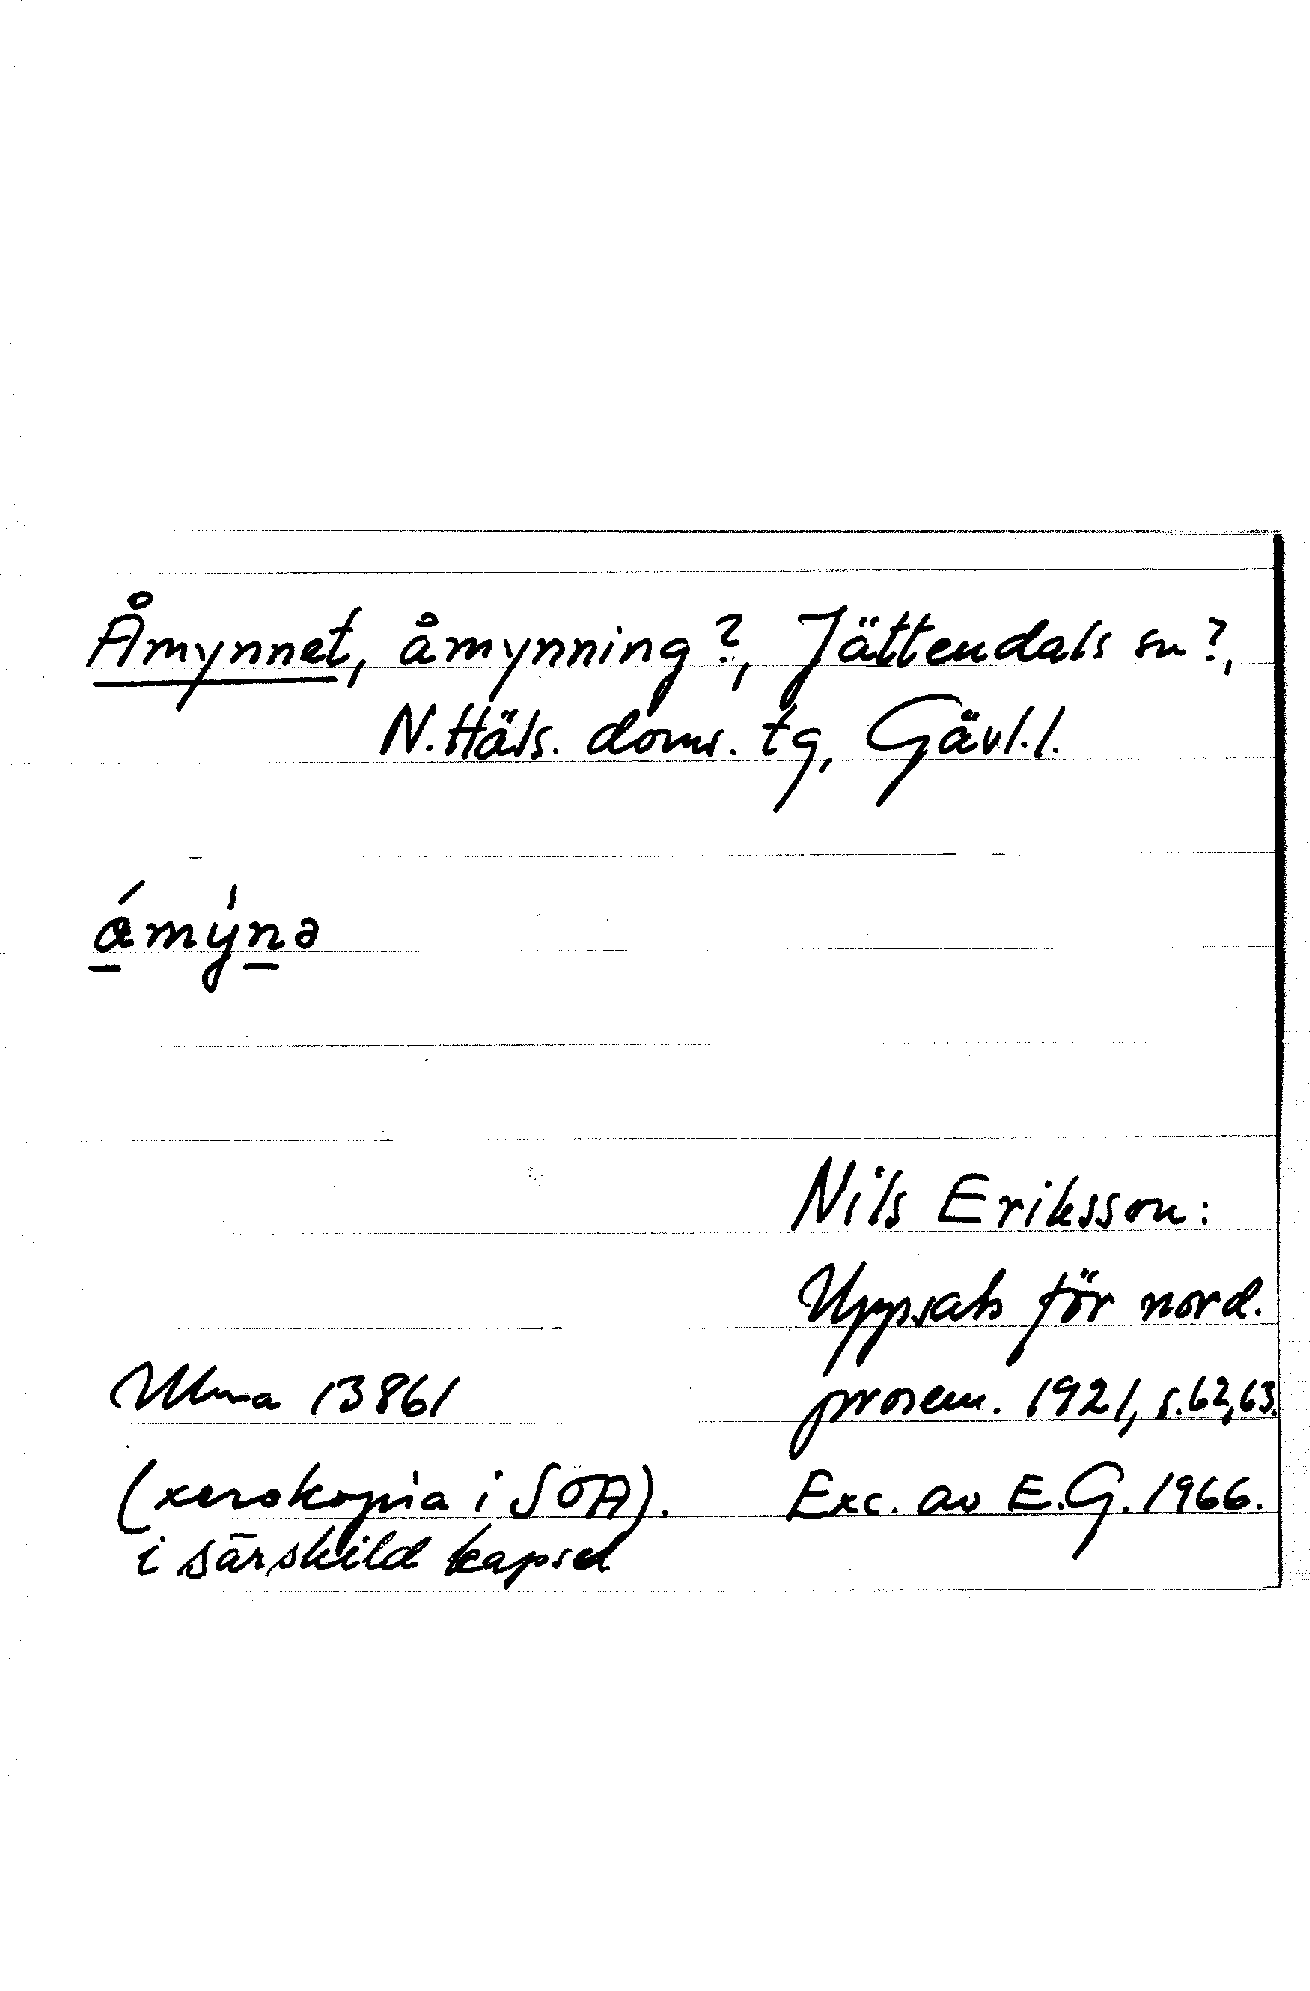 Åmynnet, åmynning?, Jättendals sn?,
N. Häls. doms. tg, Gävl. l.
ámýnə
Nils Eriksson:
Uppsats för nord.
Ulma 13861 prosem. 1921, s. 62, 63.
(xerokopia i SOA). Exc. av E.G. 1966.
i särskild kapsel